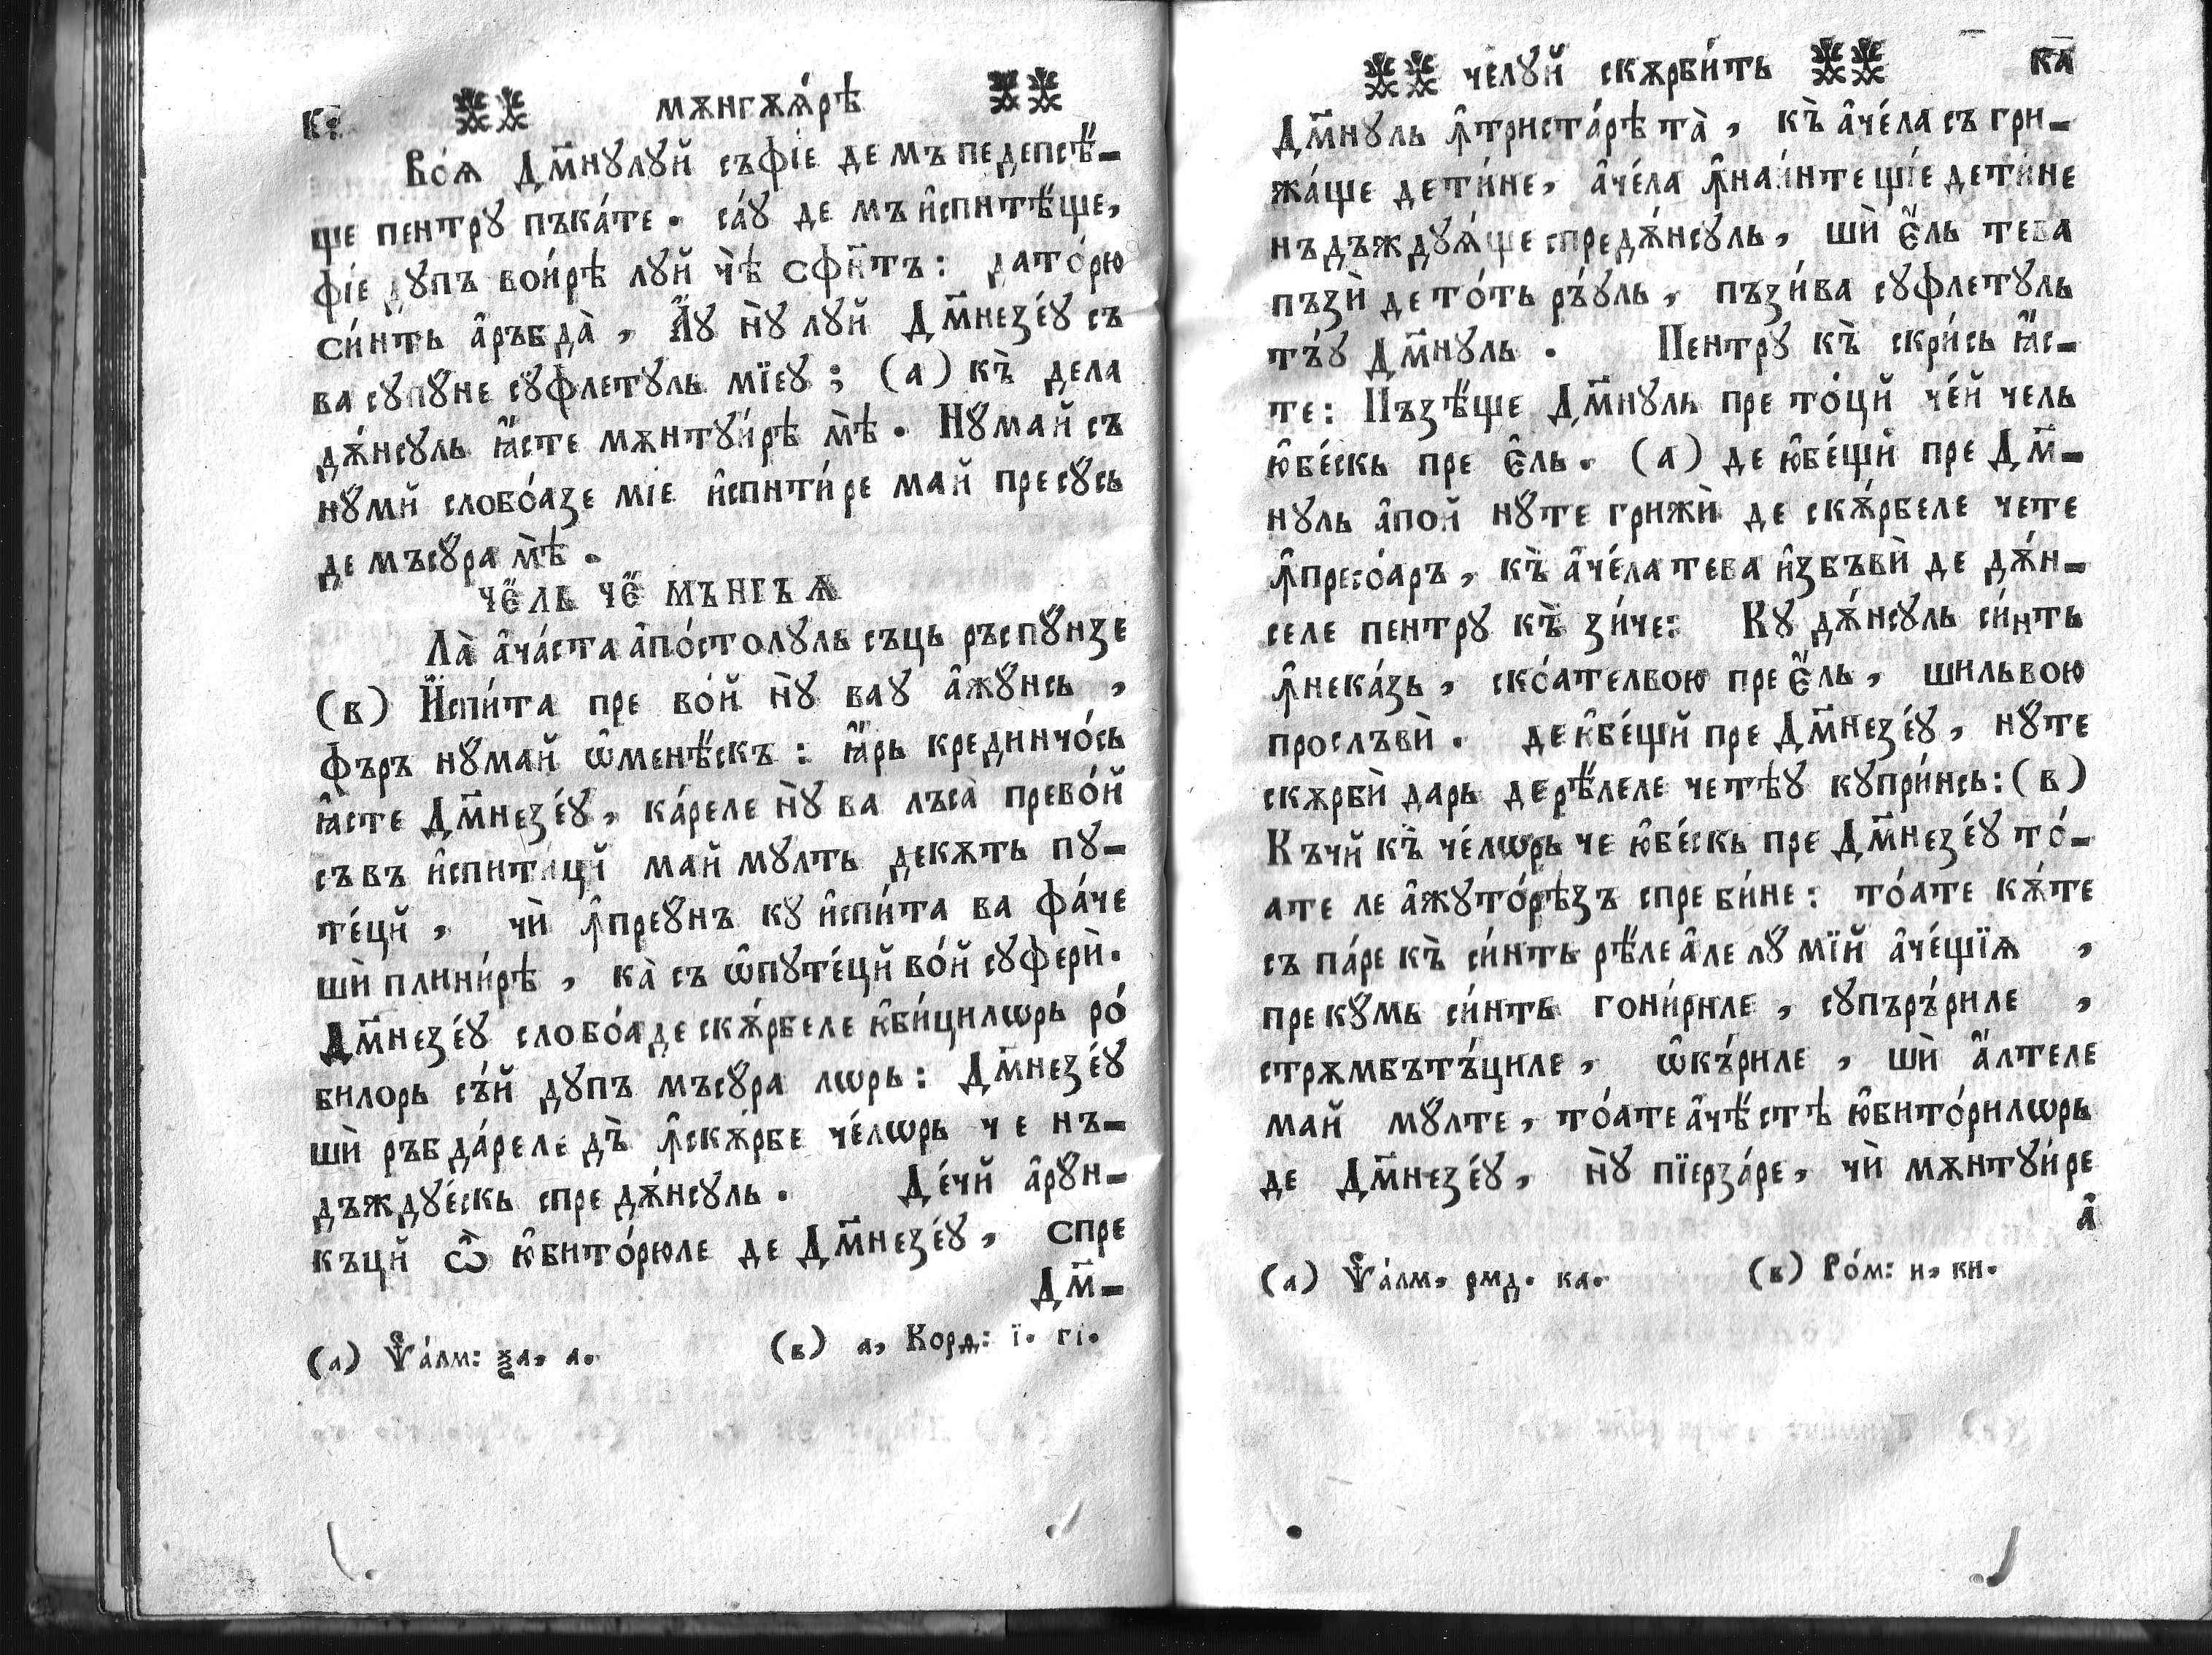 к҃ мѫнгѫѧ́рѣ
Во́ѧ Дм҃нꙋлꙋй съфі́е де мъ педепсѣ́-
ще пентрꙋ пъка́те. са́ꙋ де мъ и҆спитѣ́ще,
фі́е дꙋпъ вои́рѣ лꙋй чѣ̀ сфн҃тъ: дато́рю
си́нть а҆ръбда̀, А҆́ꙋ нꙋ̀ лꙋй Дм҃незе́ꙋ съ
ва сꙋпꙋ́не сꙋ́флетꙋль мїеꙋ; (а) къ̀ дела
дѫ́нсꙋль ꙗ҆́сте мѫнтꙋи́рѣ мѣ̀. Нꙋ́май съ
нꙋ́ми слобо́азе міе и҆спити́ре май пресꙋ́сь
де мъсꙋ́ра мѣ̀.
че́ль че́ мънгъѧ
Ла̀ а҆ча́ста а҆по́столꙋль съць ръспꙋ́нзе
(в) И҆спи́та пре во́й нꙋ̀ ваꙋ а҆жꙋ́нсь,
фъръ нꙋ́май ѡ҆менѣ́скъ: ꙗ҆́рь крединчо́сь
ꙗ҆́сте Дм҃незе́ꙋ, ка́реле нꙋ̀ ва лъса̀ прево́й
съвъ и҆спити́ци май мꙋлть декѫть пꙋ-
те́ци, чѝ ꙟ҆преꙋ́нъ кꙋ и҆спи́та ва фа́че
шѝ плини́рѣ, ка̀ съ ѡ҆пꙋте́ци во́й сꙋферѝ.
Дм҃незе́ꙋ слобо́аде скѫ́рбеле ю҆би́цилѡрь ро́
билорь съ́й дꙋпъ мъсꙋ́ра лѡрь: Дм҃незе́ꙋ
шѝ ръбда́реле дъ̀ ꙟ҆скѫ́рбе че́лѡрь че нъ-
дъждꙋе́скь спре дѫ́нсꙋль. Де́чи а҆рꙋ́н-
къци ѽ ю҆бито́рюле де Дм҃незе́ꙋ, спре
Дм҃-
(а) Ѱа́лм: ѯа, а. (в) а, Корд: ї. гі.
челꙋй скѫрби́ть к҃а
Дм҃нꙋль ꙟ҆триста́рѣ та̀, къ̀ а҆че́ла съ гри-
жа́ще дети́не, а҆че́ла ꙟ҆наи́нте щі́е дети́не
нъдъждꙋѧ́ще спредѫ́нсꙋль, шѝ є҆́ль тева
пъзѝ дето́ть ръ́ꙋль, пъзи́ва сꙋфлетꙋль
тъ́ꙋ Дм҃нꙋль. Пентрꙋ къ̀ скри́сь ꙗ҆́с-
те: Пъзѣ́ще Дм҃нꙋль пре то́ци че́й чель
ю҆бе́скь пре є҆ль. (а) де ю҆бе́щи пре Дм҃-
нꙋль а҆пой нꙋ́те грижѝ де скѫ́рбеле чете
ꙟ҆пресо́аръ, къ̀ а҆че́ла тева и҆збъвѝ де дѫ́н-
селе пентрꙋ къ̀ зи́че: Кꙋ дѫ́нсꙋль си́нть
ꙟ҆нека́зь, ско́ателвою пре є҆́ль, шильвою
прослъвѝ. де ю҆бе́щи пре Дм҃незе́ꙋ, нꙋ́те
скѫрбѝ дарь дерѣ́леле четѣꙋ кꙋпри́нсь: (в)
Къчй къ̀ че́лѡрь че ю҆бе́скь пре Дм҃незе́ꙋ то́-
ате ле а҆жꙋто́рѣзъ спре би́не: то́ате кѫ́те
съ па́ре къ̀ си́нть рѣ́ле а҆ле лꙋ́мїй а҆че́щїѧ,
прекꙋ́мь си́нть гони́риле, сꙋпъръ́риле,
стрѫмбътъ́циле, ѡ҆къ́риле, шѝ а҆́лтеле
май мꙋ́лте, то́ате а҆чѣ́стѣ ю҆бито́рилѡрь
де Дм҃незе́ꙋ, нꙋ̀ пїерза́ре, чѝ мѫнтꙋи́ре
а҆
(а) Ѱа́лм, рмд. ка. (в) Ро́м: и, ки.